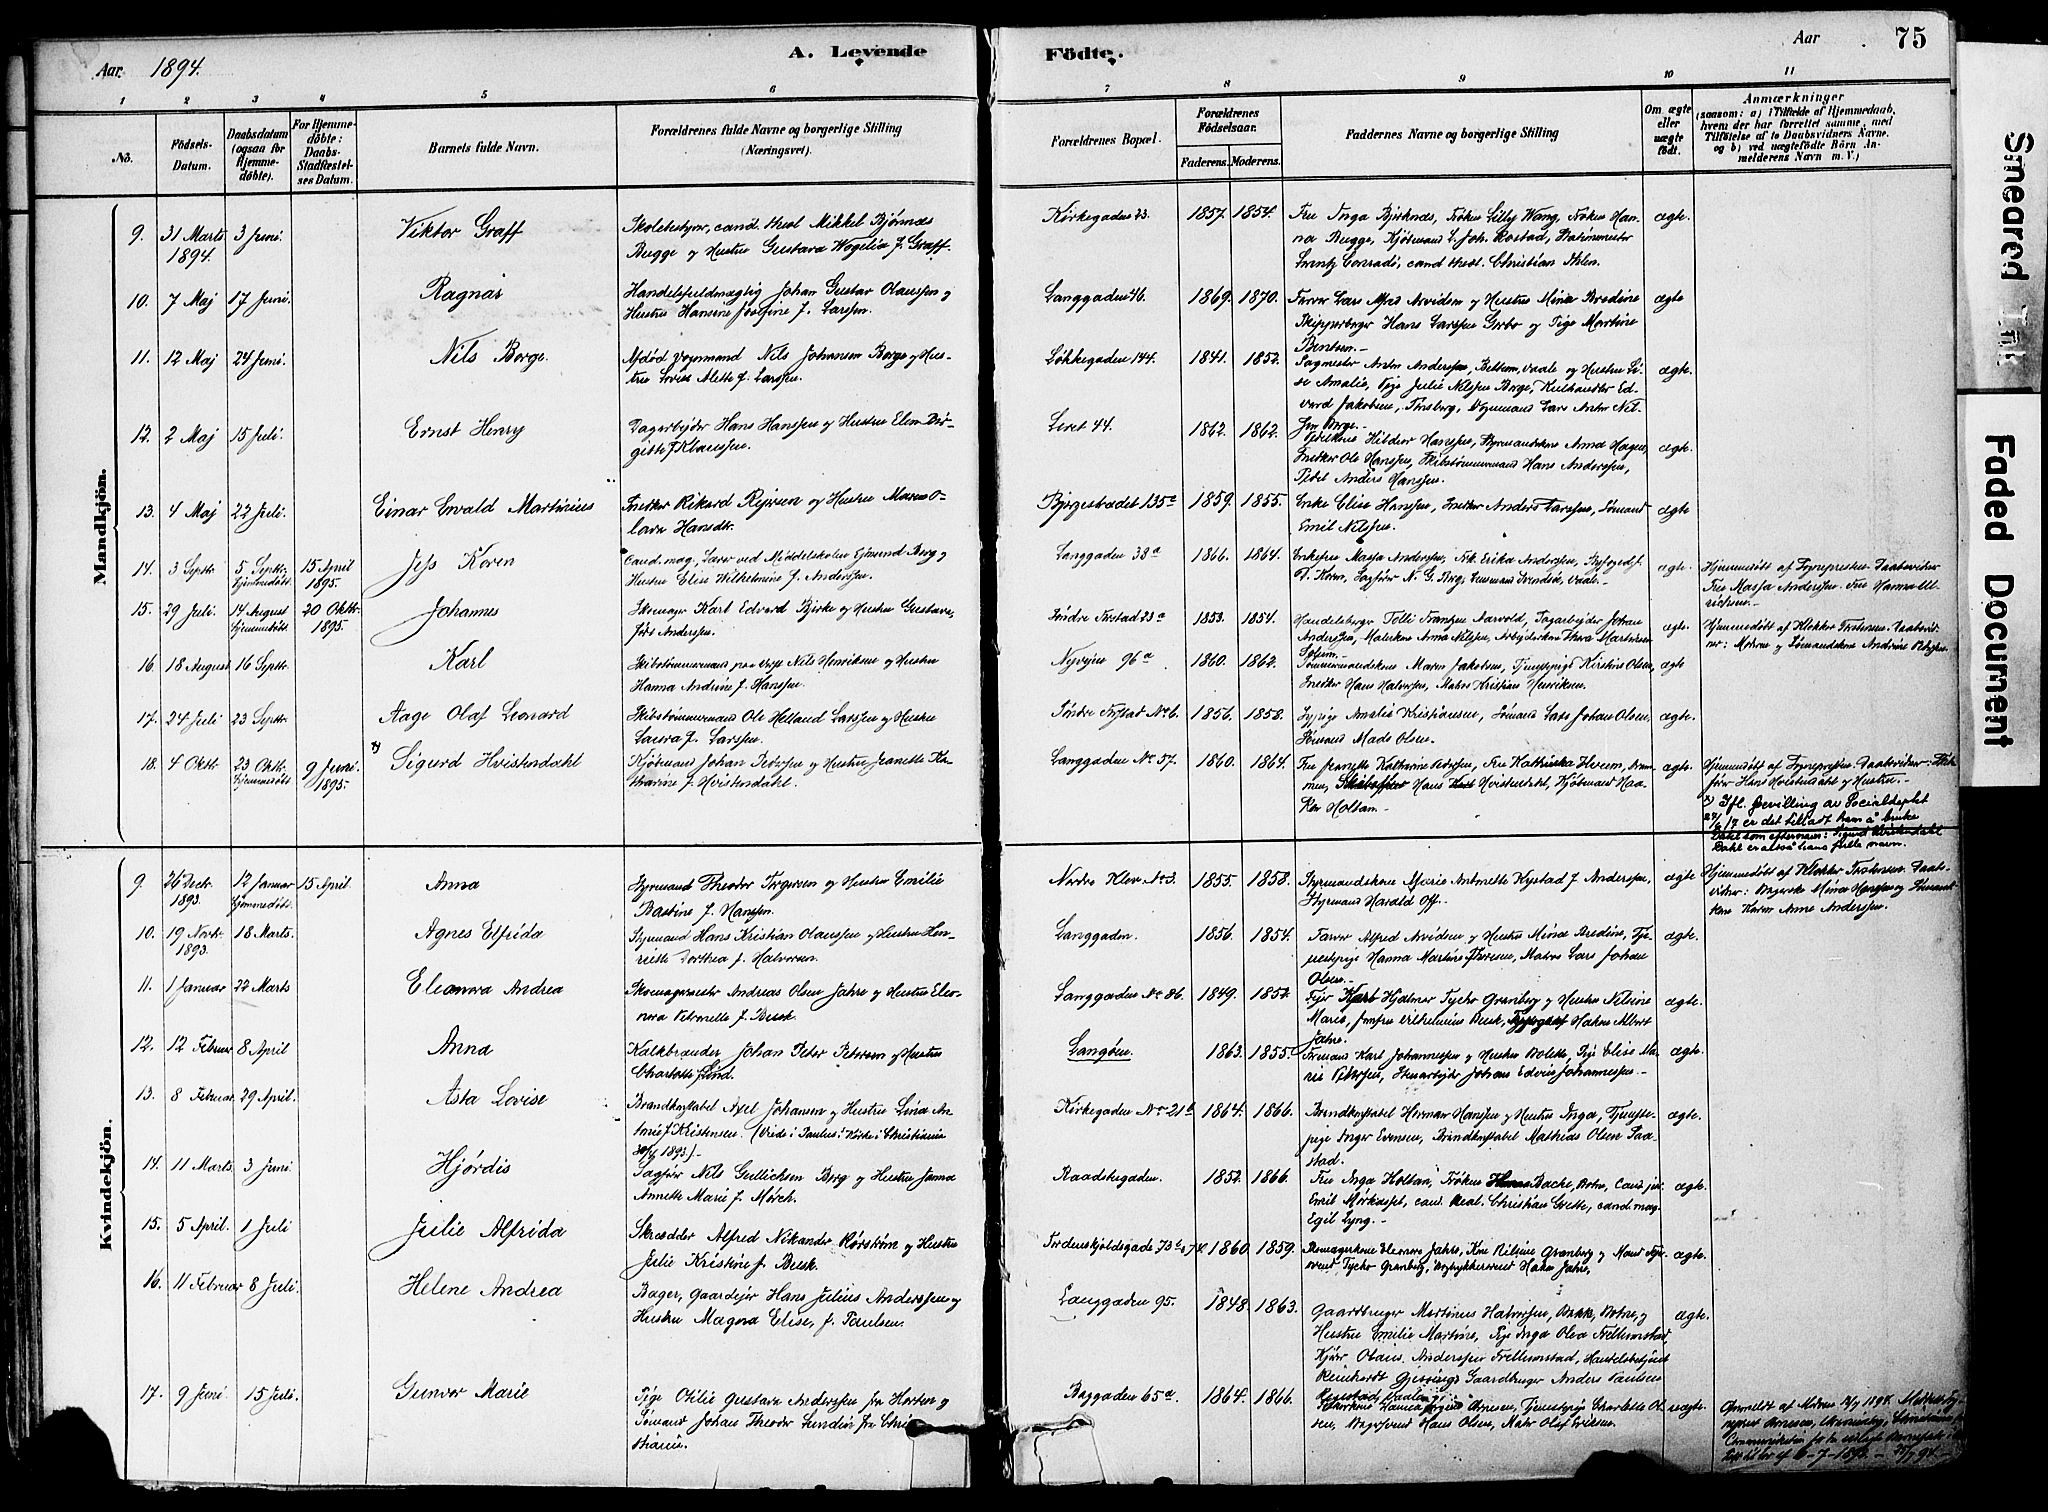 Aar. 1894.
A. Levende
Födte.
Aar
75
1 2 3 4 5 6 7 8 9 10 11
No.
Födsels-Datum.
Daabsdatum (ogsaa for Hjemmedøbte).
For Hjemmedøbte: Daabs-Stadfæstelses Datum.
Barnets fulde Navn.
Forældrenes fulde Navne og borgerlige Stilling (Næringsvei).
Forældrenes Bopæl.
Forældrenes Födselsaar.
Faderens. Moderens.
Faddernes Navne og borgerlige Stilling
Om ægte eller uægte födt.
Anmærkninger
(saasom: a) i Tilfælde af Hjemmedaab,
hvem der har forrettet samme, med
Tilföielse af to Daabsvidners Navne.
og b) ved uægtefödte Börn An-
melderens Navn m. V.)
Mandkjön.
9. 31 Marts 1894. 3 Juni. Viktor Graff
Skolebestyrer, cand. theol Mikkel Bjørnæs
Bugge og Hustru Gustava Wogelia f. Graff.
Kirkegaden 23. 1857. 1854.
Fru Inga Bjerknæs, Frøken Lilly Wang, Frøken Han-
na Bugge, Kjøbmand L. Joh. Rostad, Stationsmester
Lorentz Conradi, cand theol. Christian Ihlen.
ægte.
10. 7 Maj 17 Juni. Ragnar
Handelsfuldmægtig Johan Gustav Olaussen og
Hustru Hansine Josefine f. Larssen.
Langgaden 46. 1869. 1870.
Farver Lars Alfred Arvidsen og Hustru Mina Bredine
Skipperborger Hans Larssen Grebo og Pige Martine
Bentsen.
ægte
11. 12 Maj 24 Juni. Nils Borge.
Afdød Vognmand Nils Johansen Borge og Hus-
tru Lovise Alette f. Larssen.
Løkkegaden 144. 1841. 1852.
Sagmester Anton Anderssen, Bettum, Vaale og Hustru
Amalie, Pige Julie Nilssen Borge, Kulhandler Ed-
vard Jakobsen, Tønsberg, Vognmand Lars Anton Nil-
sen Borge.
ægte.
12. 2 Maj 15 Juli. Ernst Henry
Dagarbejder Hans Hanssen og Hustru Elen Bir-
gitte f. Klaussen.
Leret 44. 1862. 1862.
Hanssen, Styrmandskone Anna Hagen,
Snedker Ole Hanssen, Skibstømmermand Hans Anderssen,
Anders Hanssen.
ægte.
13. 4 Maj 22 Juli. Einar Ewald Martinius
Snedker Rikard Rejersen og Hustru Maren O-
lava Hansdtr.
Bjergestrædet 135a 1859. 1855.
Enke Elise Hanssen, Snedker Anders Larssen, Sømand
Emil Nilssen.
ægte
14. 3 Septbr. 5 Septbr. hjemmedøbt. 15 April 1895. Jess Koren
Cand. mag., Lærer ved Middelskolen Edmund Berg og
Hustru Elise Wilhelmine f. Anderssen.
Langgaden 38a 1866. 1864.
Enkefru Massa Anderssen, Frk. Erika Anderssen,
Koren, Sagfører N. G. Berg, Vaale.
ægte.
Hjemmedøbt af Sognepresten. Daabsvidner
Fru Massa Anderssen. Fru Hanna
15. 29 Juli. 14 August hjemmedøbt. 20 Oktbr. 1895. Johannes
Skomager Karl Edvard Bjerke og Hustru Gustava,
født Anderssen.
Søndre Frstad 23a 1853. 1854.
Handelsborger Frantzen Aarvold, Dagarbejder Johan
Anderssen, Anna Nilssen, Arbejderkone Thora Martinsen
ægte.
Hjemmedøbt af Klokker Torstensen. Daabsvid-
ner: Moderen og Sømandskone Andrine Nilssen.
16. 18 August 16 Septbr. Karl
Skibstømmermand paa Værft Nils Henriksen og Hustru
Hanna Andrine f. Hanssen.
Nyvejen 96a 1860. 1862.
Tømmermandskone Maren Jakobsen, Tjenestepige Kirstine Olsen,
Snedker Hans Halvorsen, Matros Kristian Henriksen.
ægte
17. 24 Juli 23 Septbr. Aage Olaf Leonard
Skibstømmermand Ole Helland Larssen og Hustru
Laura f. Larssen.
Søndre Frstad No 6. 1856. 1858.
Sypige Amalie Kristiansen, Sømand Lars Johan Olsen,
Sømand Mads Olsen.
ægte.
18. 4 Oktbr. 23 Oktbr. hjemmedøbt 9 Juni. 1895. x) Sigurd Hvistendahl
Kjøbmand Johan Pedersen og Hustru Jeanette Ka-
tharine f. Hvistendahl.
Langgaden No 57. 1860. 1864.
Fru Jeanette Katharine Pedersen, Fru Kathinka Hveem, Dram-
men, Hans Hvistendahl, Kjøbmand Haa-
kon Holtan.
ægte.
Hjemmedøbt af Sognepresten. Daabsvidner:
Hans Hvistendahl og Hustru.
x) Ifl. bevilling av Socialdeptet
27/6 17 er det tilladt ham å bruke
Dahl som efternavn: Sigurd Hvistendahl
Dahl er altså hans fulle navn.
Kvindekjön.
9. 26 Decbr. 1893. 12 Januar hjemmedøbt 15 April Anna
Styrmand Theodor Torgersen og Hustru Emilie
Bastine f. Hanssen.
Nordre Klev No 3. 1855. 1858.
Styrmandskone Marie Antonette Nystad f. Anderssen,
Styrmand Harald Off.
ægte
Hjemmedøbt af Klokker Torstensen. Daabs-
vidner: Mina Hanssen og Sømands-
kone Karen Anne Anderssen.
10. 19 Novbr. 1893. 18 Marts. Agnes Elfrida
Styrmand Hans Kristian Olaussen og Hustru Hen-
riette Dorthea f. Halvorsen.
Langgaden. 1856. 1854.
Farver Alfred Arvidsen og Hustru Mina Bredine, Tje-
nestepige Hanna Martine Iversen, Matros Lars Johan
Olsen.
ægte.
11. 1 Januar 22 Marts Eleonora Andrea
Skomagermester Andreas Olsen Jahre og Hustru Eleo-
nora Petronelle f. Busk.
Langgaden No 86. 1849. 1852.
Hjalmar Tycho Granberg og Hustru Nilsine
Marie, Jomfru Wilhelmine Busk, Haken Albert
Jahre.
ægte.
12. 12 Februar 8 April Anna
Kalkbrænder Johan Peter Petersen og Hustru
Charlotte f. Lind.
Langøen. 1863. 1855.
Formand Karl Johannessen og Hustru Bolette, Pige Elise Ma-
rie Petersen, Stenarbejder Johan Edvin Johannessen.
ægte.
13. 8 Februar 29 April. Asta Lovise
Brandkonstabel Axel Johansen og Hustru Lina An-
tonie f. Kristensen. (Viede i Paulus Kirke i Christiania
1893.)
Kirkegaden No 21b 1864. 1866.
Brandkonstabel Herman Hanssen og Hustru Inga, Tjeneste-
pige Inger Evensen, Brandkonstabel Mathias Olsen Saa-
stad.
ægte.
14. 11 Marts 3 Juni. Hjørdis
Sagfører Nils Gullichsen Berg og Hustru Janna
Annette Marie f. Mørch.
Raadhusgaden. 1852. 1866.
Fru Inga Holtan, Frøken Bache, Botne, Cand. jur.
Emil Mørkasset, cand. real. Christian Grette, cand. mag.
Egil Lyng.
ægte.
15. 5 April. 1 Juli Julie Alfrida
Skrædder Alfred Nikander Rørstrøm og Hustru
Julie Kristine f. Busk.
Tordenskjoldsgade 73b 1860. 1859.
Skomagerkone Eleonore Jahre, Kone Nilsine Granberg og Mand
Tycho Granberg, Haken Jahre.
ægte.
16. 11 Februar 8 Juli. Helene Andrea
Bager, Gaardejer Hans Julius Anderssen og
Hustru Magna Elise, f. Paulsen.
Langgaden 95. 1848. 1863.
Gaardbruger Martinus Halvorsen, Bakke, Botne, og
Hustru Emilie Martine, Pige Inga Olava Frellumstad,
Olaus Anderssen Frellumstad, Handelsbetjent
Reinhardt Gaardbruger Anders Paulsen
ægte.
17. 9 Juni 15 Juli. Gunvor Marie
Pige Otilie Gustava Anderssen fra Horten og
Sømand Johan Theodor Lundin fra Chris-
tiania.
Baggaden 65a 1864. 1866.
Arnesen, Tjenestepige Charlotte Ol-
sen, Hans Olsen, Matr Olaf Eriksen.
uægte.
Anmeldt af Moderen 1894.
6-7-1892.
Smeared Ink
Faded Document